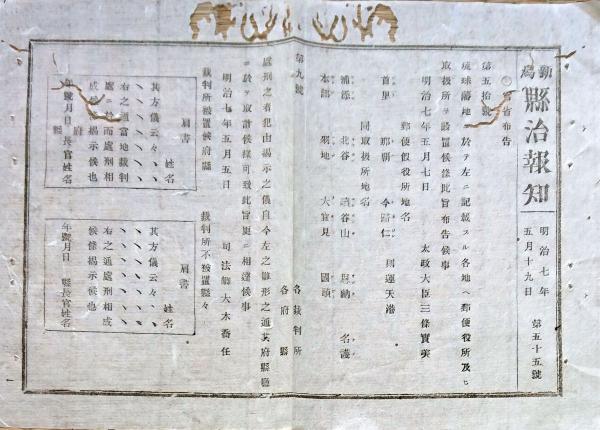 縣治報知
明治七年
五月十九日
第五十五號
○官省布告
第五拾號
琉球藩地ニ於テ左ニ記載スル各地ヘ郵便役所及ヒ
取扱所ヲ設置候條此旨布告候事
明治七年五月七日
太政大臣三條實美
郵便假役所地名
首里 那覇 今歸仁 運天港
同取扱所地名
浦添 北谷 讀谷山 恩納 名護
本部 羽地 大宜見 國頭
第九號
各裁判所
各府縣
處刑之者犯由揭示之儀自今左之雛形之通
ニ於テ取計候樣可致此旨更ニ相達候事
明治七年五月五日
司法卿大木喬任
裁判所被置候府縣
肩書
姓名
其方儀云々
右之通當地裁判
處ニ於而處刑相
成候條揭示候也
年號月日
府縣長官姓名
裁判所不被置縣々
肩書
姓名
其方儀云々
右之通處刑相成
候條揭示候也
年號月日
縣長官姓名